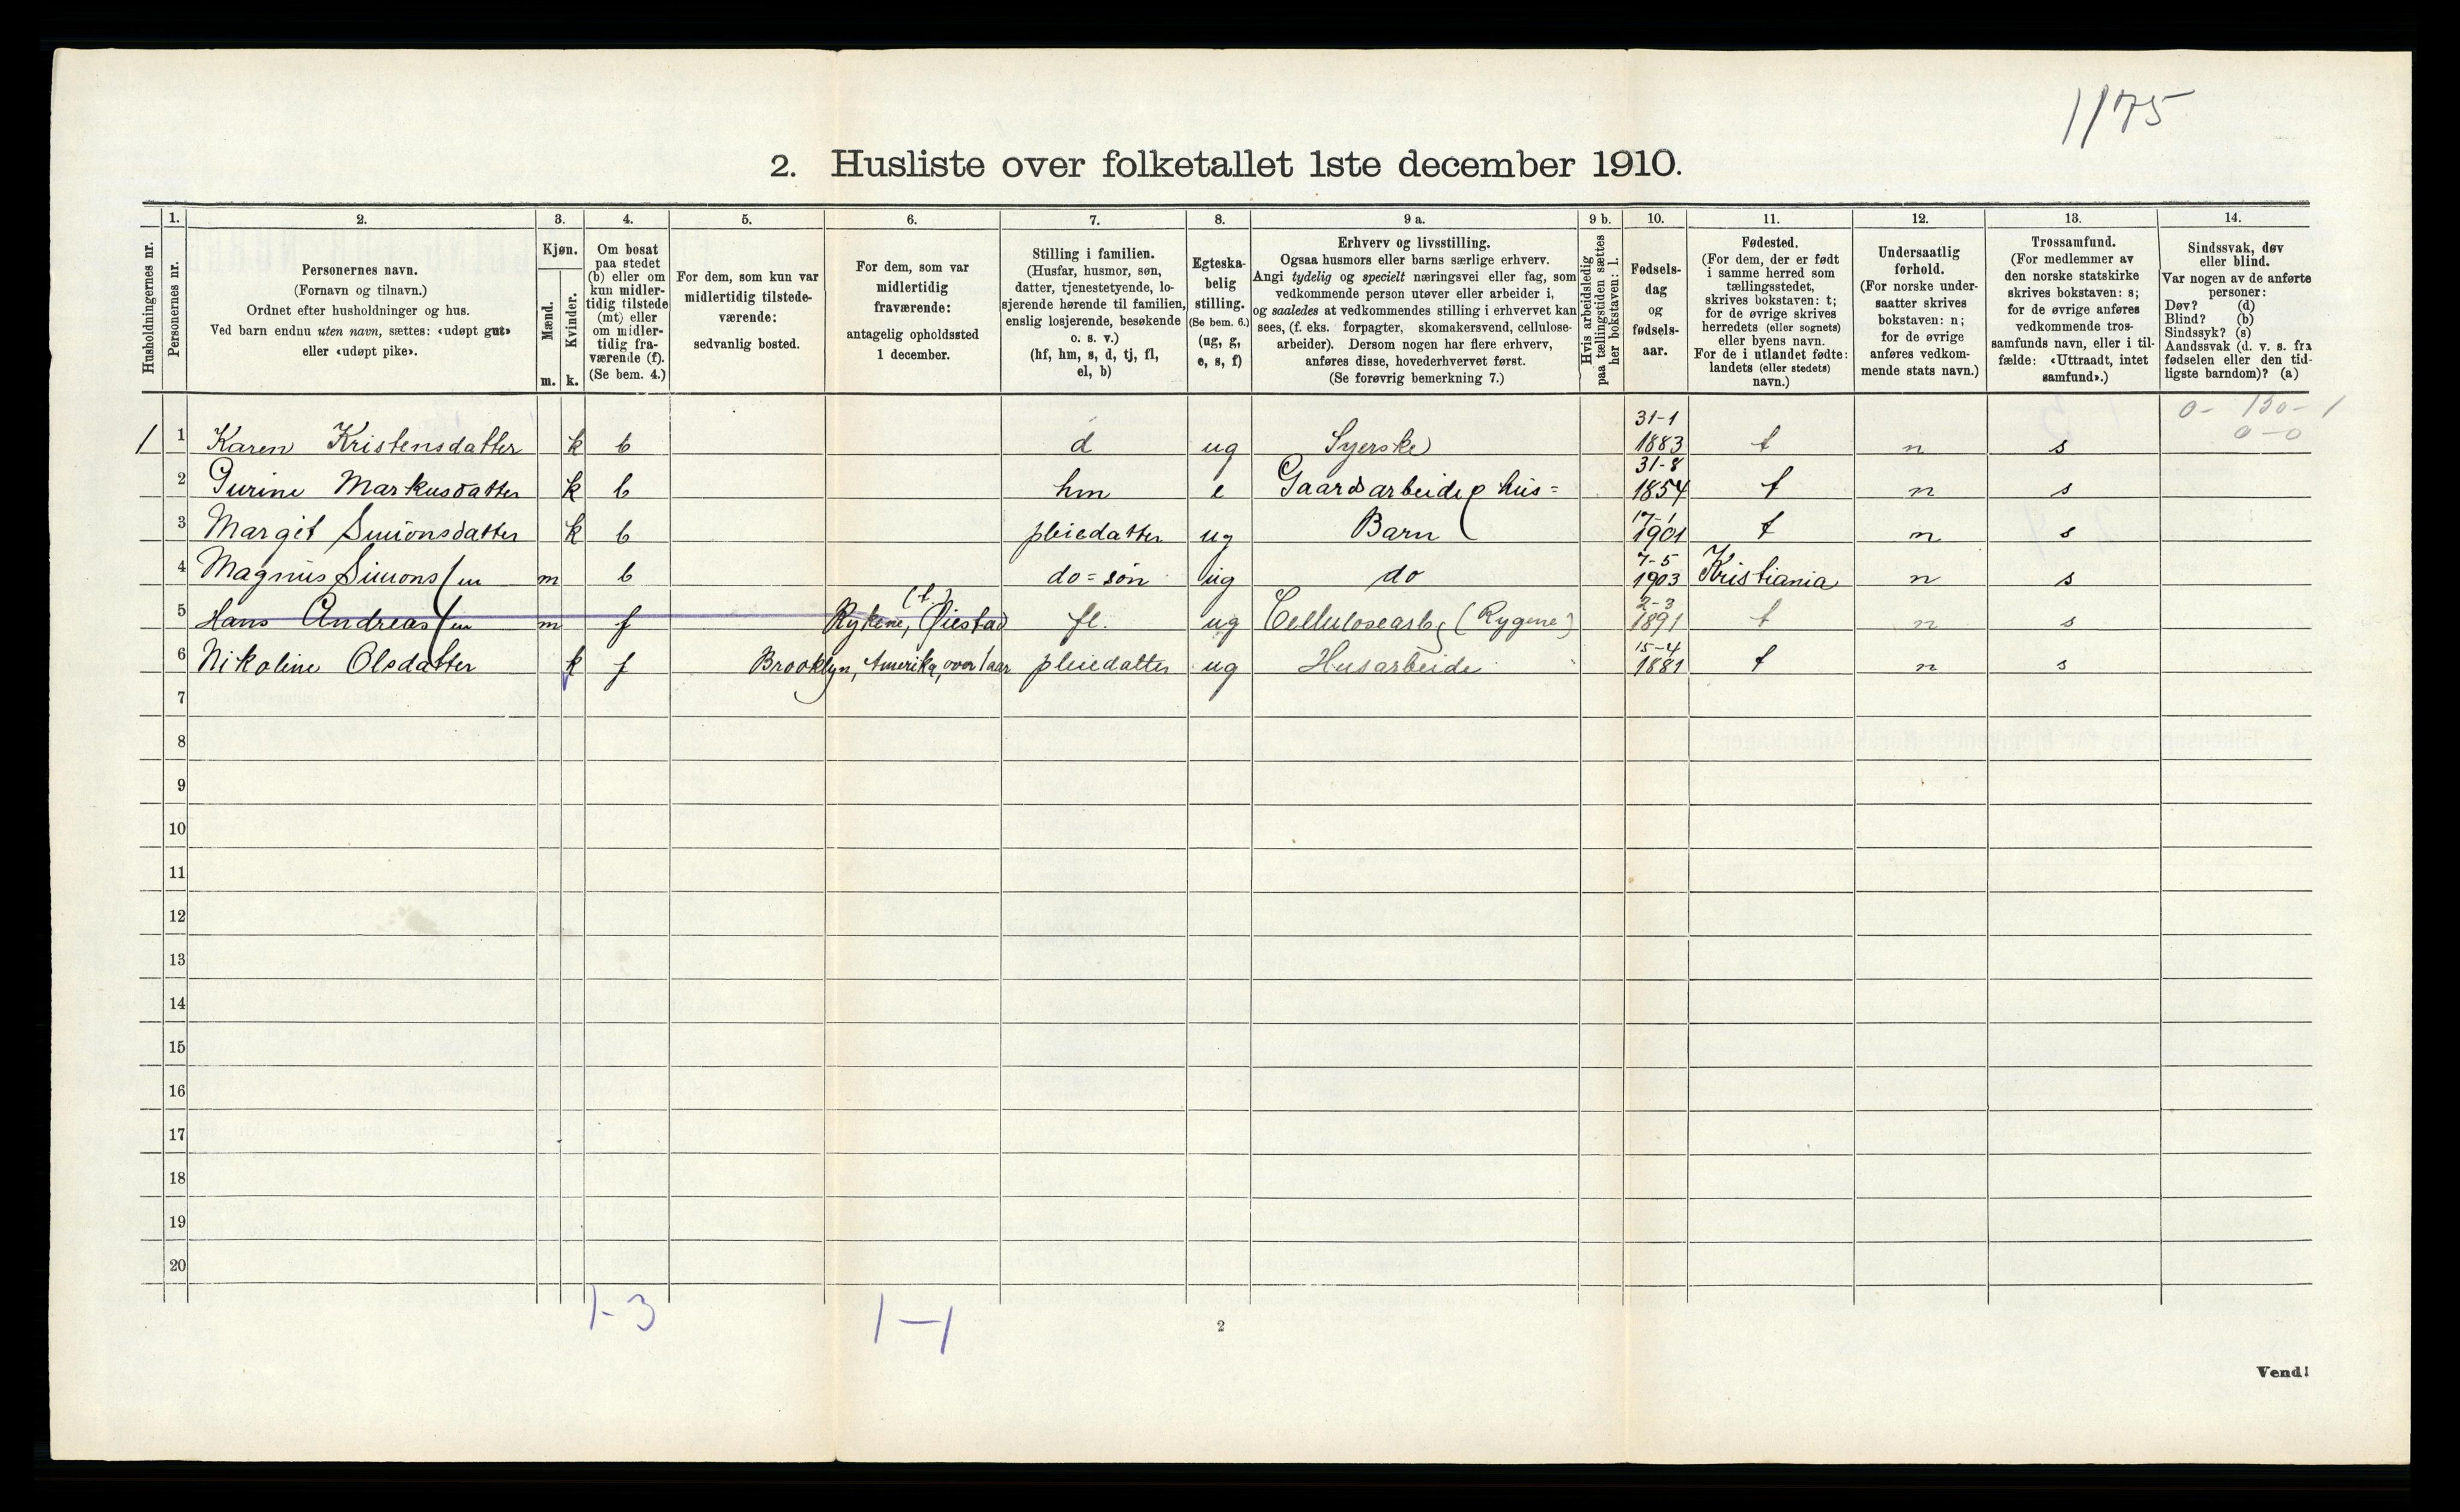 1175
2. Husliste over folketallet 1ste december 1910.
Husholdningernes nr.
1. Personernes nr.
2. Personernes navn. (Fornavn og tilnavn.) Ordnet efter husholdninger og hus. Ved barn endnu uten navn, sættes: «udøpt gut» eller «udøpt pike».
3. Kjøn. Mænd. m. Kvinder. k.
4. Om bosat paa stedet (b) eller om kun midlertidig tilstede (mt) eller om midlertidig fraværende (f). (Se bem. 4.)
5. For dem, som kun var midlertidig tilstedeværende: sedvanlig bosted.
6. For dem, som var midlertidig fraværende: antagelig opholdssted 1 december.
7. Stilling i familien. (Husfar, husmor, søn, datter, tjenestetyende, losjerende hørende til familien, enslig losjerende, besøkende o. s. v.) (hf, hm, s, d, tj, fl, el, b)
8. Egteskabelig stilling. (Se bem. 6.) (ug, g, e, s, f)
9 a. Erhverv og livsstilling. Ogsaa husmors eller barns særlige erhverv. Angi tydelig og specielt næringsvei eller fag, som vedkommende person utøver eller arbeider i, og saaledes at vedkommendes stilling i erhvervet kan sees, (f. eks. forpagter, skomakersvend, cellulosearbeider). Dersom nogen har flere erhverv, anføres disse, hovederhvervet først. (Se forøvrig bemerkning 7.)
9 b. Hvis arbeidsledig paa tællingstiden sættes her bokstaven: l.
10. Fødselsdag og fødselsaar.
11. Fødested. (For dem, der er født i samme herred som tællingsstedet, skrives bokstaven: t; for de øvrige skrives herredets (eller sognets) eller byens navn. For de i utlandet fødte: landets (eller stedets) navn.)
12. Undersaatlig forhold. (For norske undersaatter skrives bokstaven: n; for de øvrige anføres vedkommende stats navn.)
13. Trossamfund. (For medlemmer av den norske statskirke skrives bokstaven: s; for de øvrige anføres vedkommende trossamfunds navn, eller i tilfælde: «Uttraadt, intet samfund».)
14. Sindssvak, døv eller blind. Var nogen av de anførte personer: Døv? (d) Blind? (b) Sindssyk? (s) Aandssvak (d. v. s. fra fødselen eller den tidligste barndom)? (a)
0- 130- 1
0-0
1 1 Karen Kristensdatter k b d ug Syerske 31-1 1883 t n s
2 Gurine Markusdatter k b hm e Gaardsarbeide o hus= 31-8 1854 t n s
3 Margit Simonsdatter k b pleiedatter ug Barn 17-1 1901 t n s
4 Magnus Simonssen m b do=søn ug do 7-5 1903 Kristiania n s
5 Hans Andreassen m f Rykene, (t) Øiestad fl. ug Cellulosearb. (Rygene) 2-3 1891 t n s
6 Nikoline Olsdatter k f Brooklyn, Amerika, over 1 aar pleiedatter ug Husarbeide 15-4 1881 t n s
7
8
9
10
11
12
13
14
15
16
17
18
19
20
1-3
1-1
2
Vend!